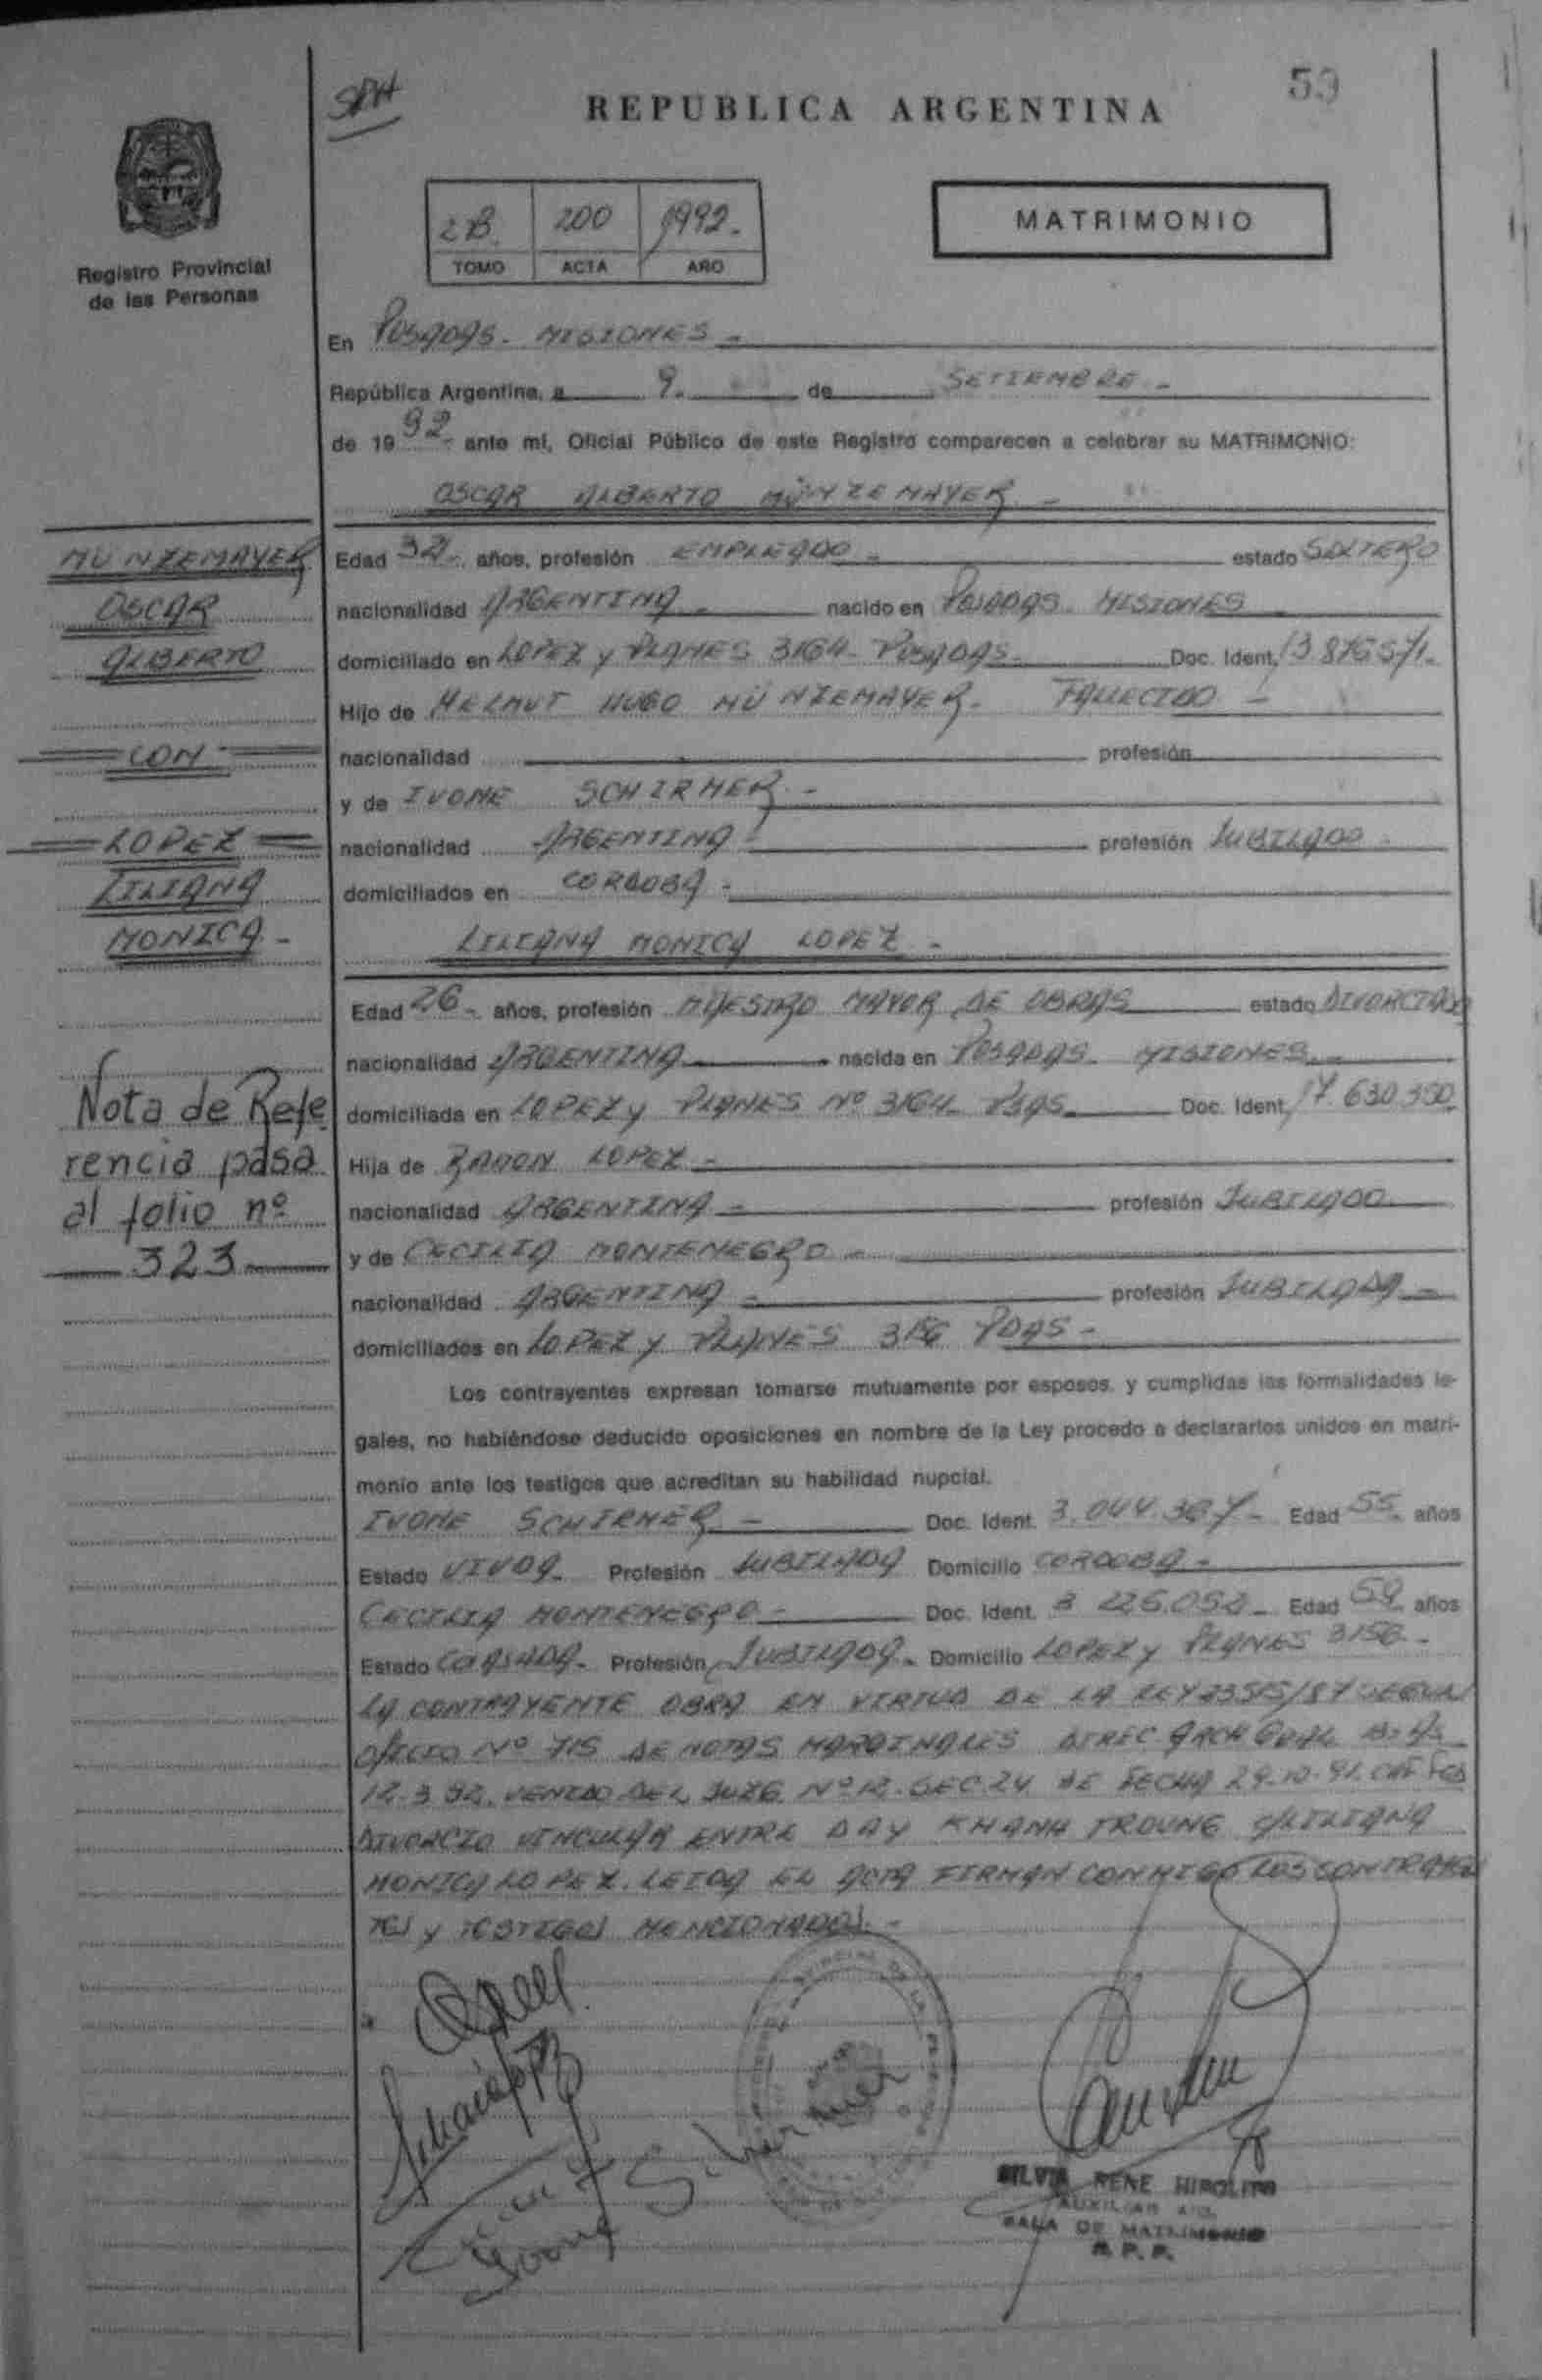 59
SPH
REPUBLICA ARGENTINA
Registro Provincial
de las Personas
2B. 200 1992.
TOMO ACTA AÑO
MATRIMONIO
En POSADAS - MISIONES -
República Argentina, a 9. de SETIEMBRE -
de 1992 - ante mí, Oficial Público de este Registro comparecen a celebrar su MATRIMONIO:
OSCAR ALBERTO MÜNZEMAYER -
MUNZEMAYER
OSCAR
ALBERTO
CON
LOPEZ
LILIANA
MONICA -
Edad 32 - años, profesión EMPLEADO - estado SOLTERO
nacionalidad ARGENTINA - nacido en POSADAS - MISIONES
domiciliado en LOPEZ y PLANES 3164 - POSADAS - Doc. Ident. 13.876571 -
Hijo de HELMUT HUGO MÜNZEMAYER - FALLECIDO -
nacionalidad profesión
y de IVONE SCHIRMER -
nacionalidad ARGENTINA - profesión JUBILADO -
domiciliados en CORDOBA -
LILIANA MONICA LOPEZ -
Edad 26 - años, profesión MAESTRO MAYOR DE OBRAS estado DIVORCIADA
nacionalidad ARGENTINA nacida en POSADAS - MISIONES -
domiciliada en LOPEZ y PLANES Nº 3164 - PSAS - Doc. Ident. 17.630.350
Hija de RAMON LOPEZ -
nacionalidad ARGENTINA - profesión JUBILADO
y de CECILIA MONTENEGRO -
nacionalidad ARGENTINA - profesión JUBILADA -
domiciliados en LOPEZ y PLANES 3156 PDAS -
Nota de Refe
rencia pasa
al folio nº
323
Los contrayentes expresan tomarse mutuamente por esposos, y cumplidas las formalidades le-
gales, no habiéndose deducido oposiciones en nombre de la Ley procedo a declararlos unidos en matri-
monio ante los testigos que acreditan su habilidad nupcial.
IVONE SCHIRMER - Doc. Ident. 3.044.367 - Edad 55 - años
Estado VIUDA - Profesión JUBILADA Domicilio CORDOBA -
CECILIA MONTENEGRO - Doc. Ident. 3 226.052 - Edad 59 - años
Estado CASADA - Profesión JUBILADA - Domicilio LOPEZ y PLANES 3156 -
LA CONTRAYENTE OBRA EN VIRTUD DE LA LEY 23515/87 SEGUN
OFICIO Nº 715 DE NOTAS MARGINALES DIREC ARCH GRAL Bs As
12.3.92. VENIDO DEL JUZG. Nº 12 - SEC 24 DE FECHA 29-10-91.
DIVORCIO VINCULAR ENTRE DAY KHANH TROUNG C/LILIANA
MONICA LOPEZ. LEIDA EL ACTA FIRMAN CONMIGO LOS CONTRAYEN
TES y TESTIGOS MENCIONADOS. -
Schirmer
SILVIA RENE HIPOLITO
AUXILIAR
SALA DE MATRIMONIO
R. P. P.